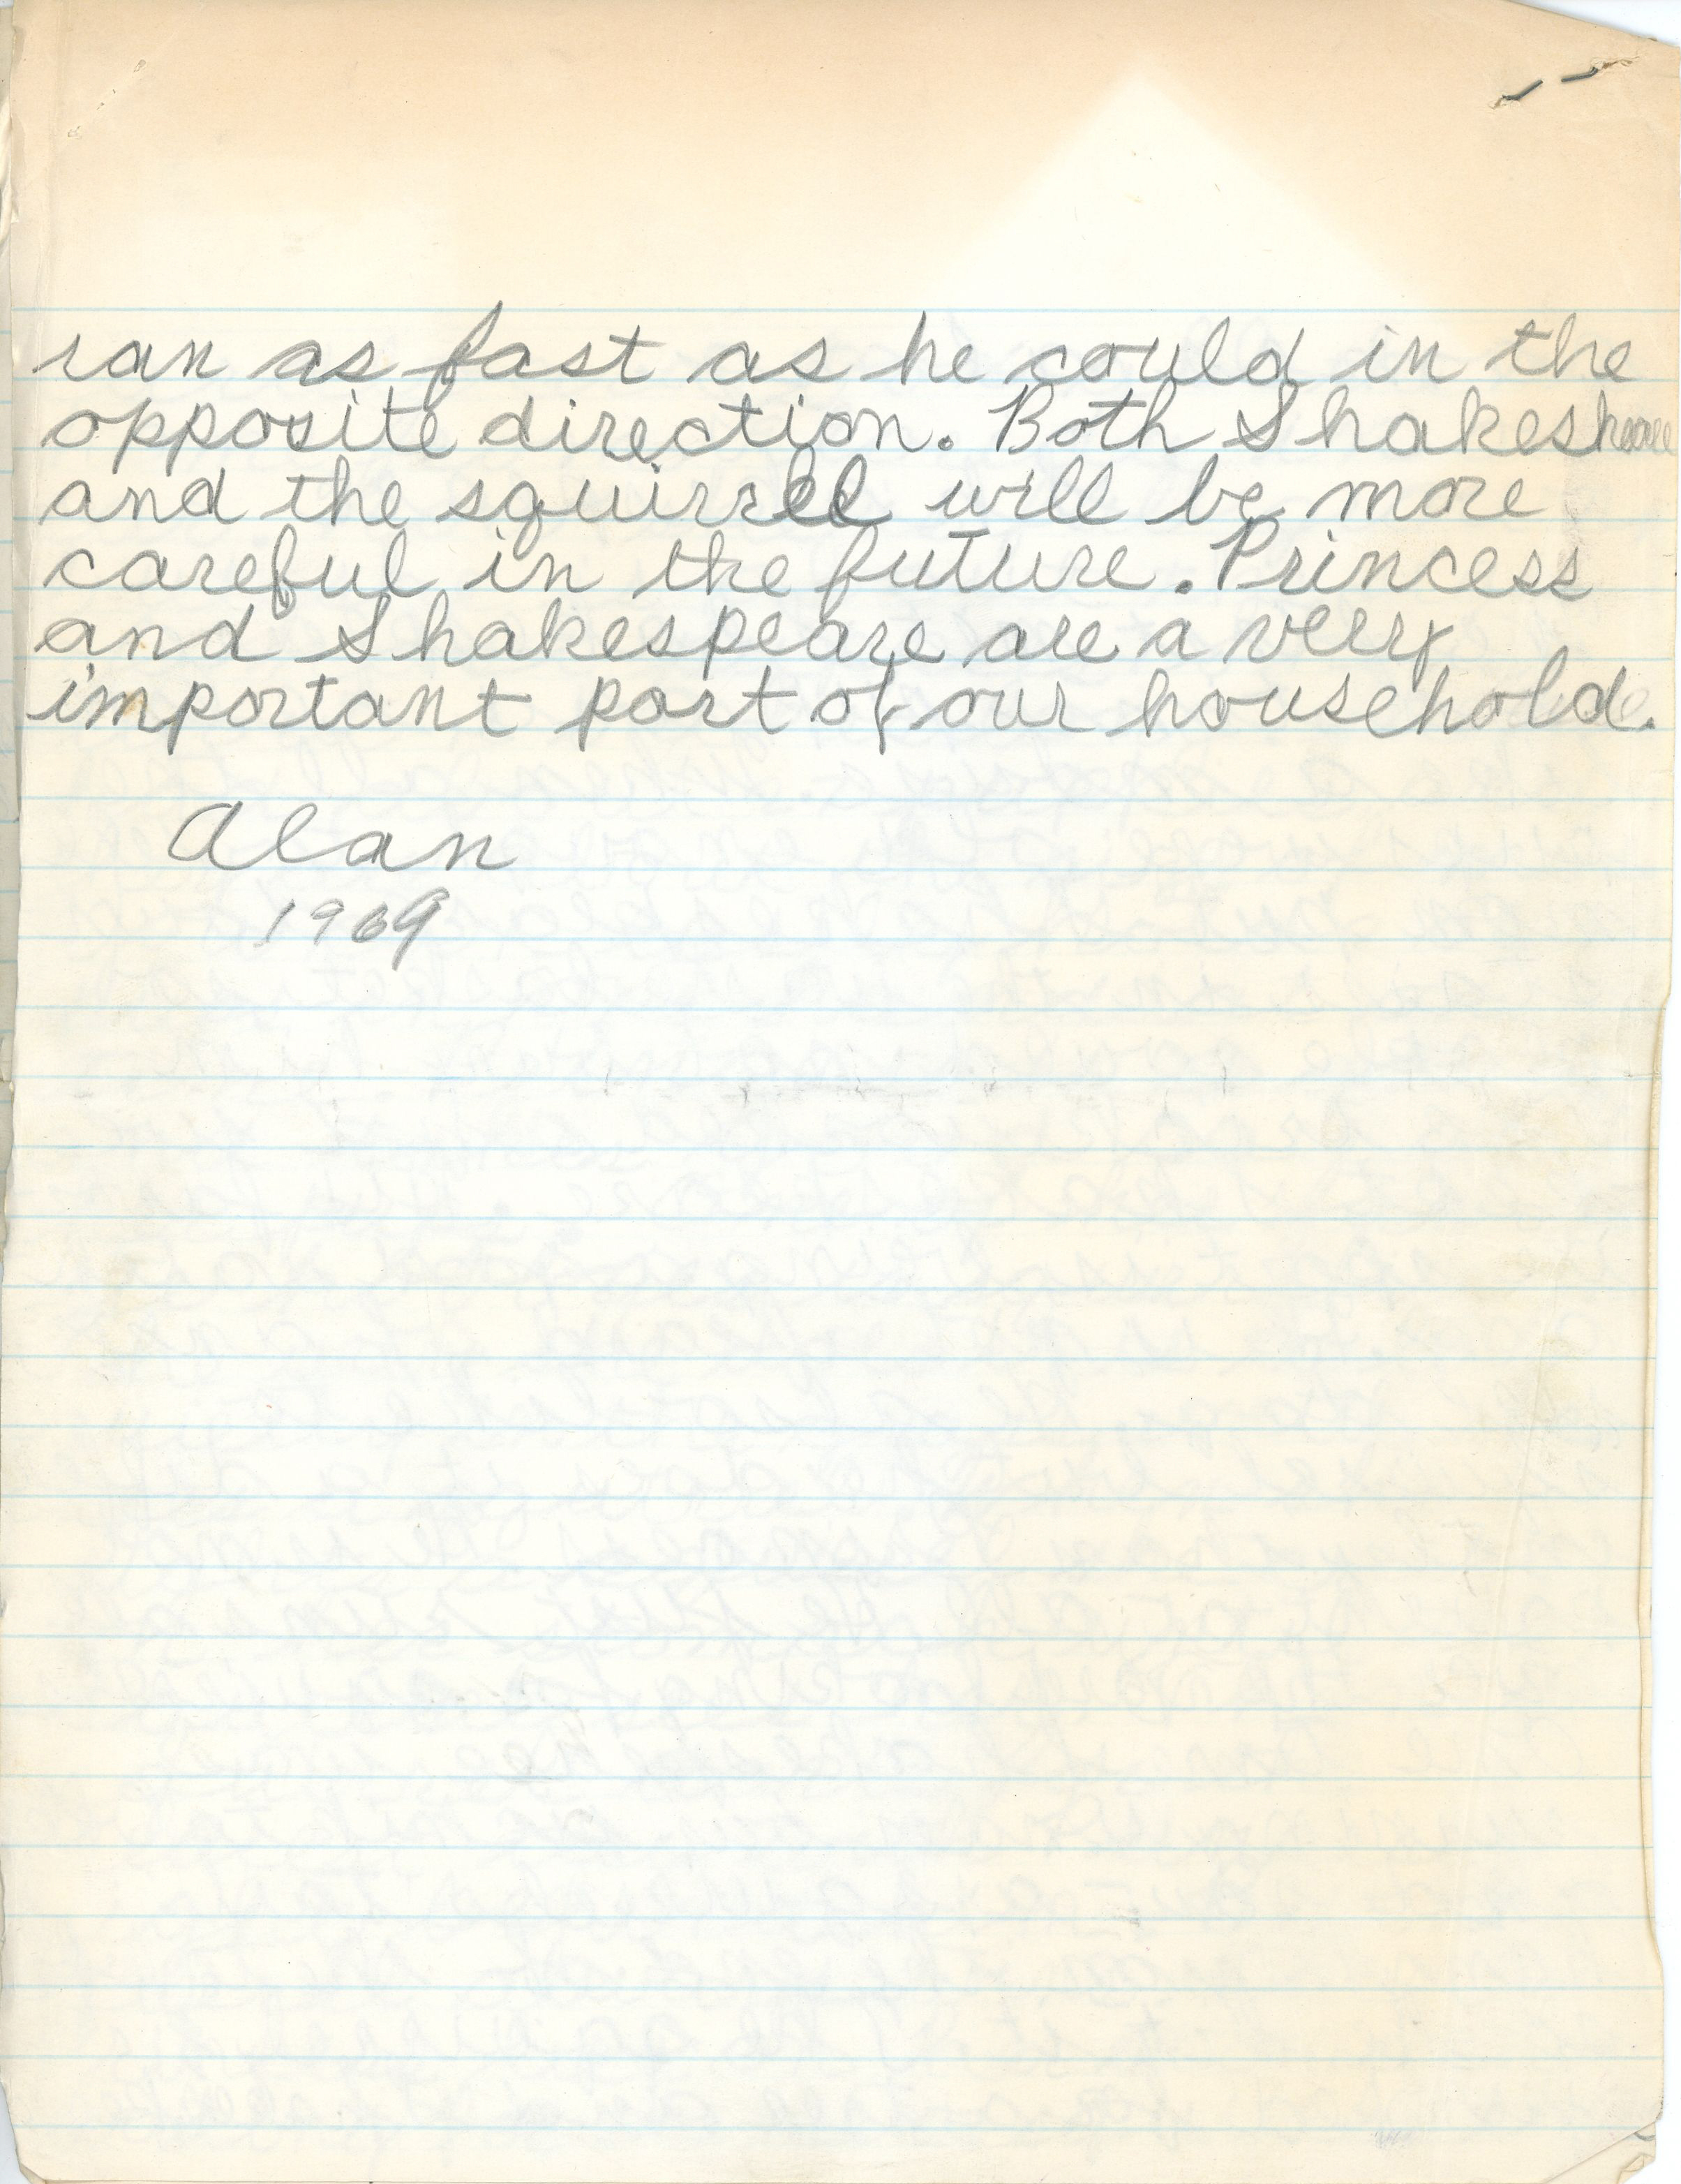 ran as fast as he could in the
opposite direction. Both Shakespeare
and the squirrel will be more
careful in the future. Princess
and Shakespeare are a very
important part of our household.
Alan
1969